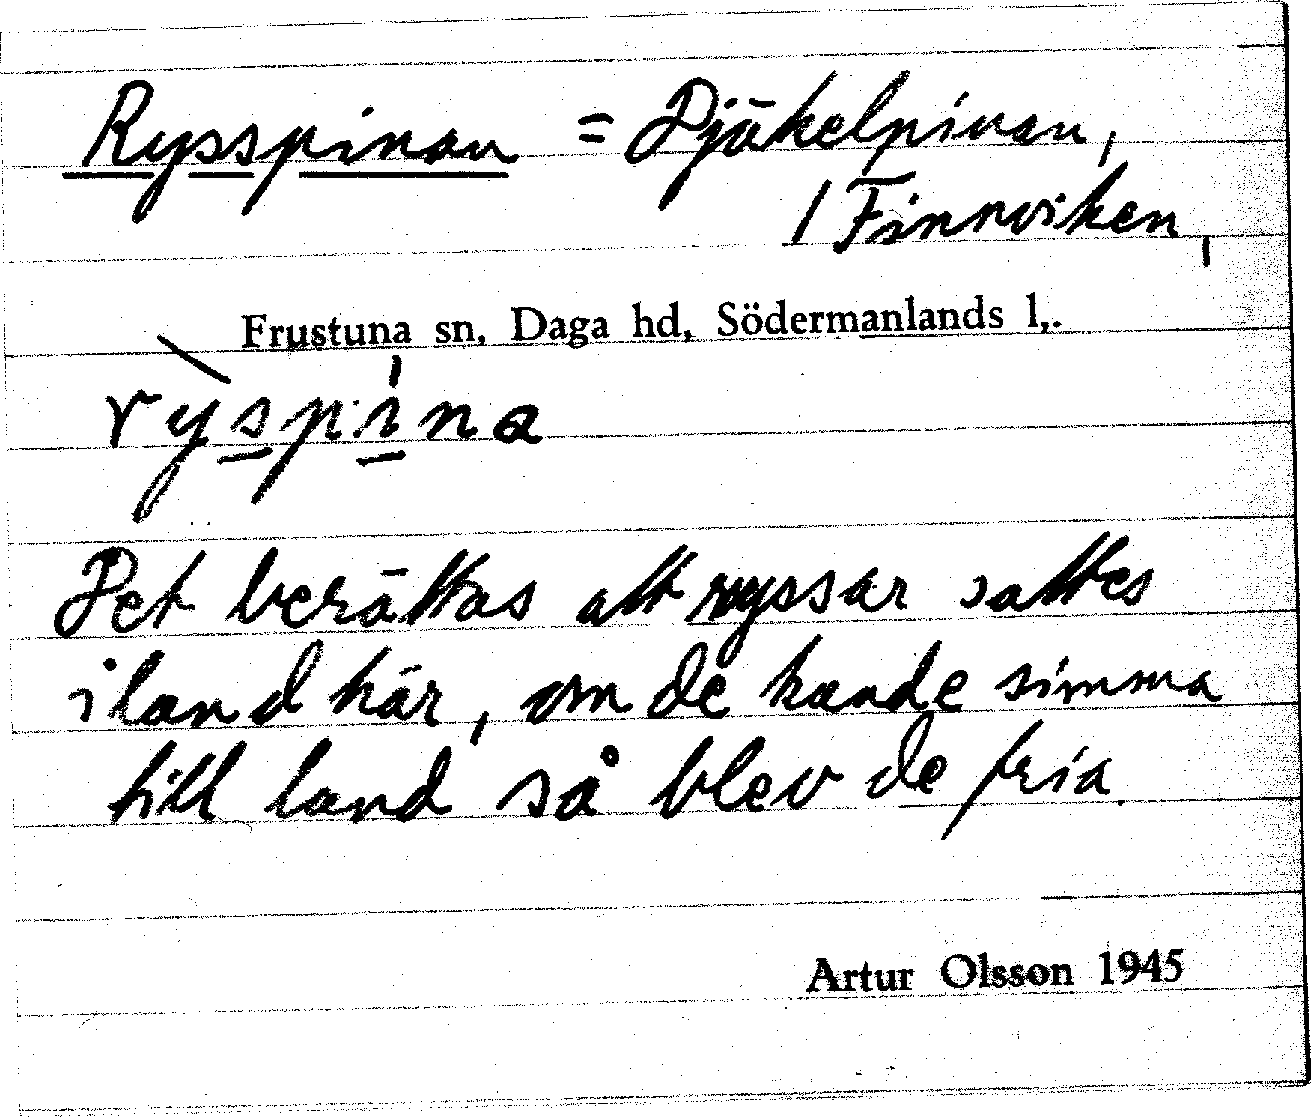 Rysspinan = Djäkelpinan,
i Finnviken,
Frustuna sn, Daga hd, Södermanlands l,.
ryspina
Det berättas att ryssar sattes
i land här, om de kunde simma
till land så blev de fria
Artur Olsson 1945